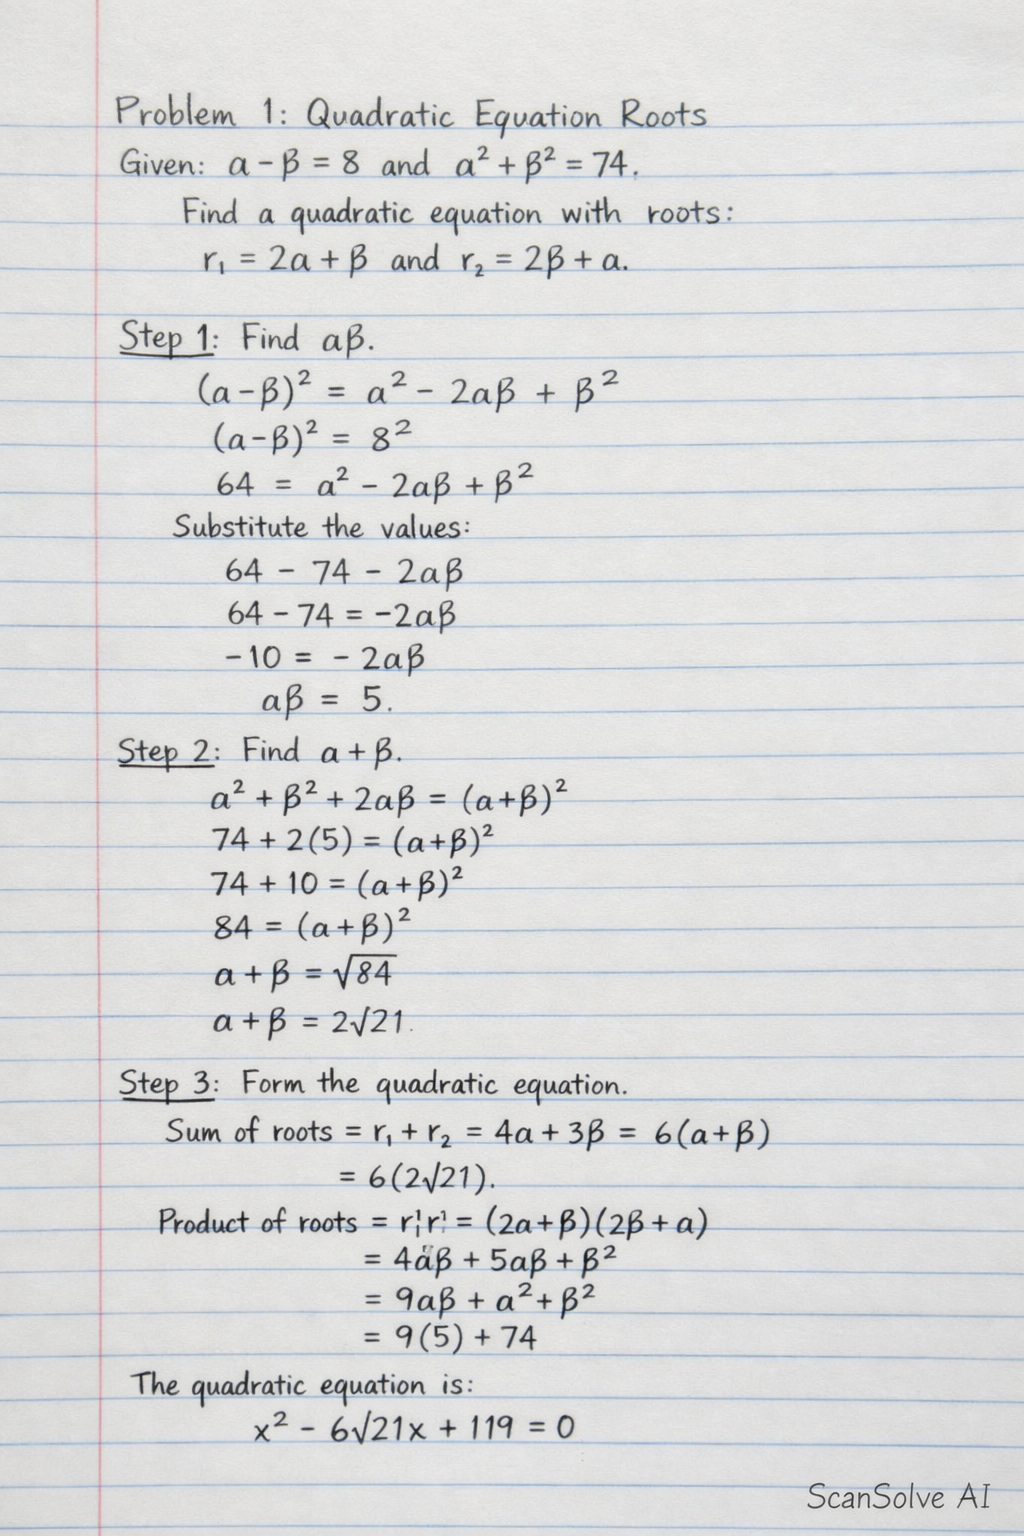 Problem 1: Quadratic Equation Roots
Given: α - β = 8 and α² + β² = 74.
Find a quadratic equation with roots:
r₁ = 2α + β and r₂ = 2β + α.
Step 1: Find αβ.
(α-β)² = α² - 2αβ + β²
(α-β)² = 8²
64 = α² - 2αβ + β²
Substitute the values:
64 - 74 - 2αβ
64 - 74 = -2αβ
-10 = - 2αβ
αβ = 5.
Step 2: Find α + β.
α² + β² + 2αβ = (α+β)²
74 + 2(5) = (α+β)²
74 + 10 = (α+β)²
84 = (α+β)²
α + β = √84
α + β = 2√21.
Step 3: Form the quadratic equation.
Sum of roots = r₁ + r₂ = 4α + 3β = 6(α+β)
= 6(2√21).
Product of roots = = (2α+β)(2β+α)
= 4αβ + 5αβ + β²
= 9αβ + α² + β²
= 9(5) + 74
The quadratic equation is:
x² - 6√21x + 119 = 0
ScanSolve AI